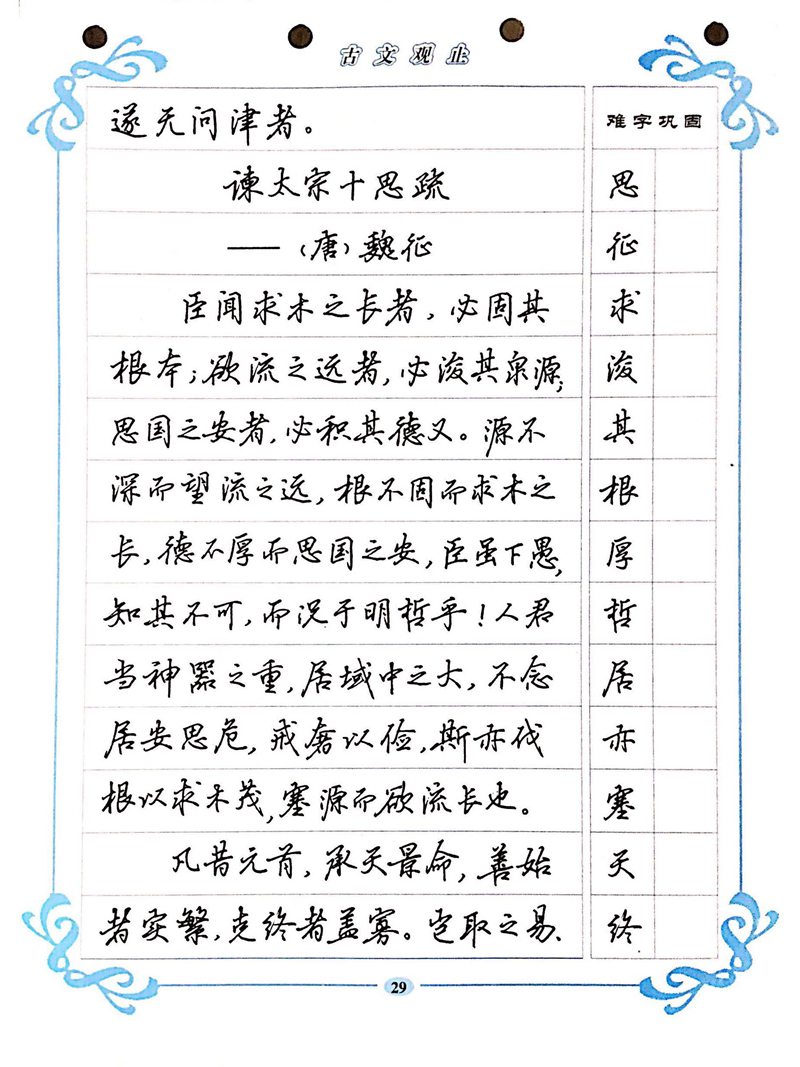 古文观止
遂无问津者。
难字巩固
谏太宗十思疏
思
——（唐）魏征
征
臣闻求木之长者，必固其
求
根本；欲流之远者，必浚其泉源；
浚
思国之安者，必积其德义。源不
其
深而望流之远，根不固而求木之
根
长，德不厚而思国之安，臣虽下愚，
厚
知其不可，而况于明哲乎！人君
哲
当神器之重，居域中之大，不念
居
居安思危，戒奢以俭，斯亦伐
亦
根以求木茂，塞源而欲流长也。
塞
凡昔元首，承天景命，善始
天
者实繁，克终者盖寡。岂取之易、
终
29